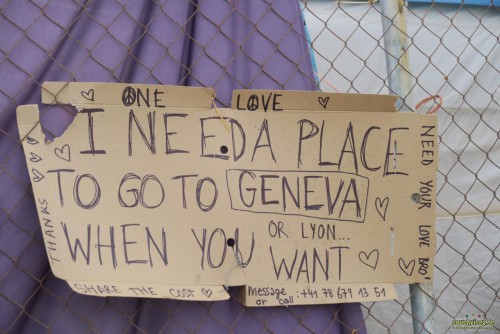 ONE LOVE
I NEED A PLACE
TO GO TO GENEVA
OR LYON...
WHEN YOU WANT
THANKS
NEED YOUR LOVE BRO!
SHARE THE COST
Message or call : +41 78 679 13 51